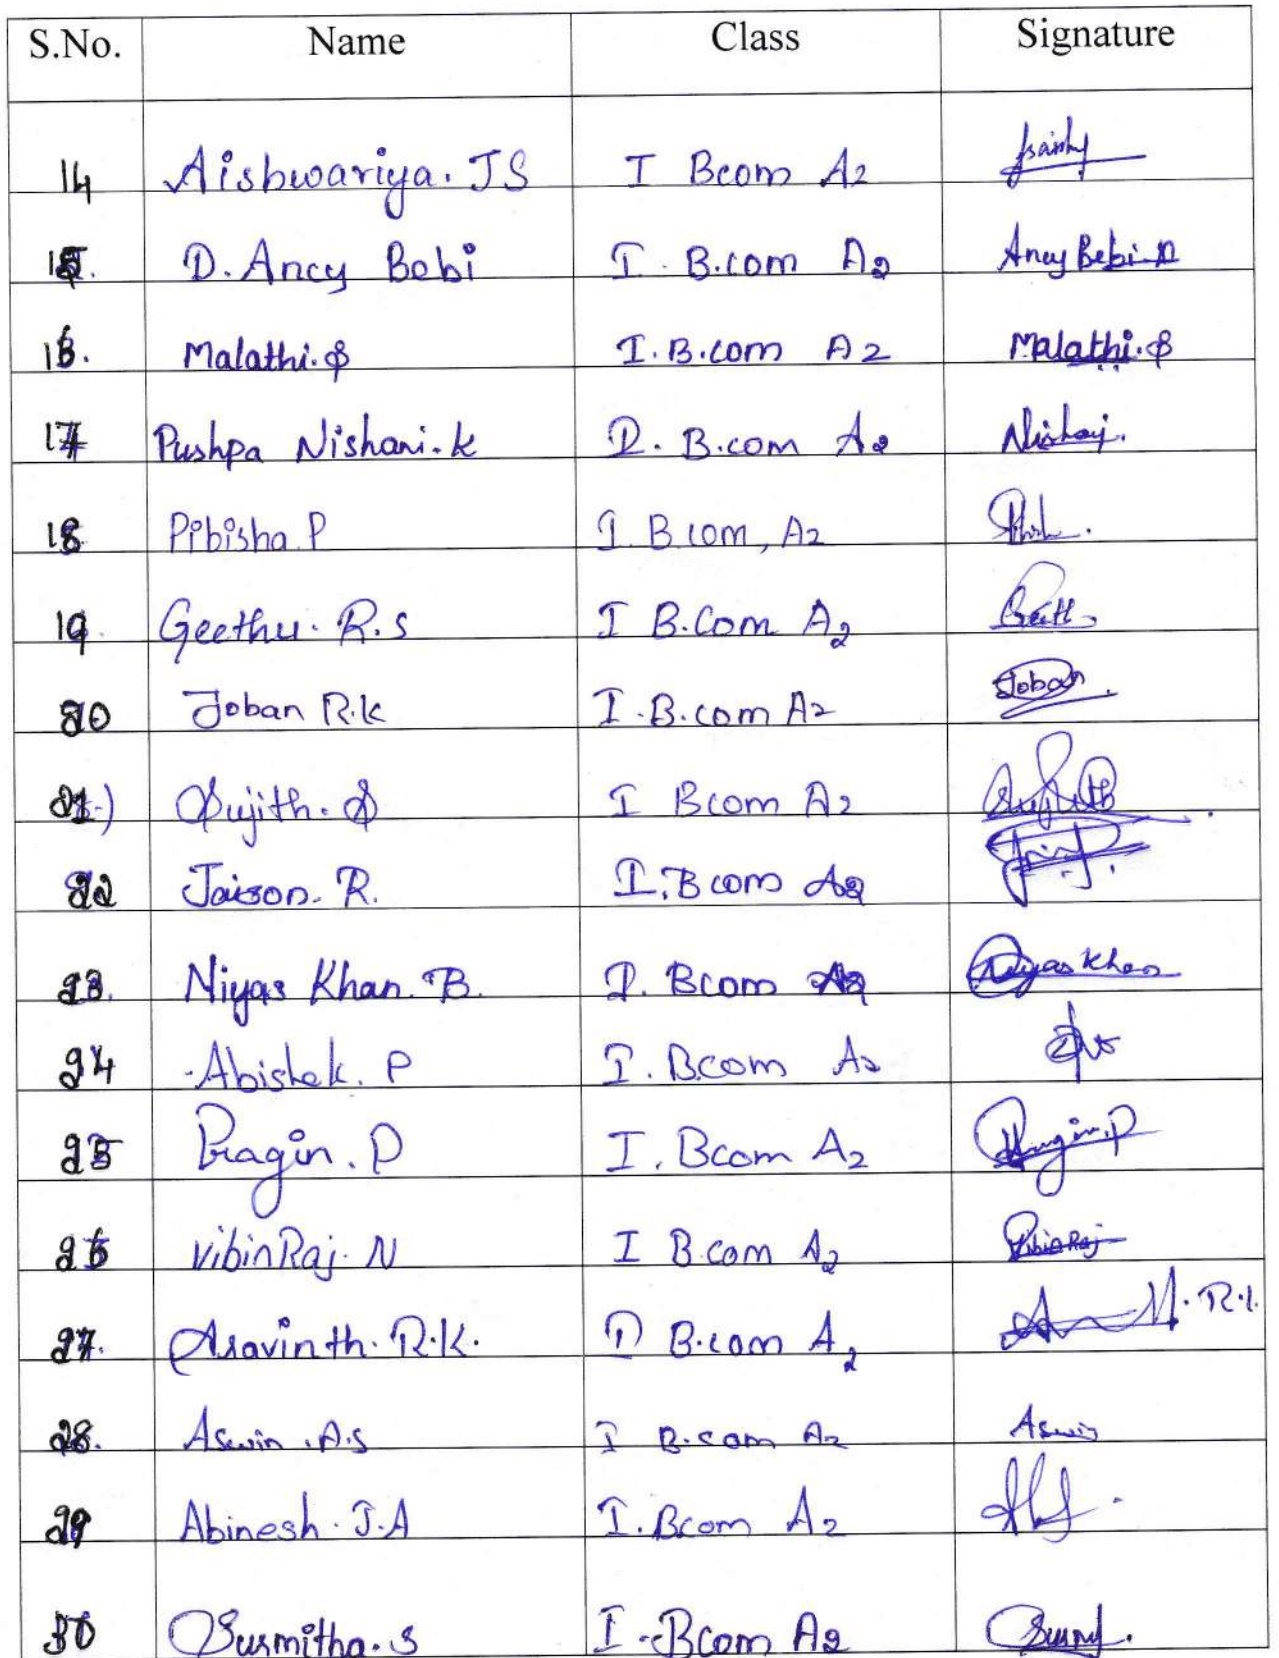 S.No. Name Class Signature
14 Aishwariya. J S I Bcom A2
15. D. Ancy Bebi I. B.com A2 Ancy Bebi. D
16. Malathi. S I. B.com A2 Malathi. S
17 Pushpa Nishani. K I. B.com A2
18 Pibisha P I. B com, A2
19. Geethu. R. S I B.Com A2 Geeth
20 Joban R.K I. B.com A2 Joban
21.) Sujith. S I Bcom A2 Sujith
22 Jaison. R. I. B com A2
23. Niyas Khan. B. I. Bcom A2 Niyas Khan
24 Abishek. P I. B.com A2
25 Pragin. P I. Bcom A2 Pragin. P
26 Vibin Raj. N I B.com A2 Vibin Raj
27. Aravinth. R.K. I B.com A2
28. Aswin. A.S I B.com A2 Aswin
29 Abinesh. J.A I. Bcom A2
30 Susmitha. S I - Bcom A2